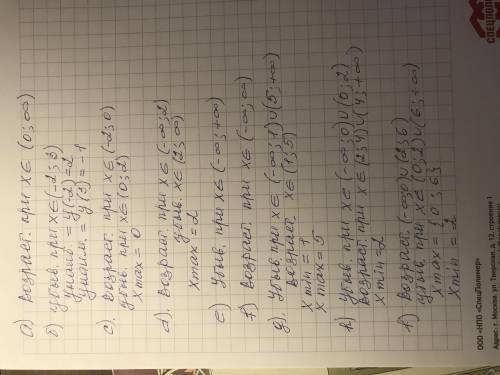 а) Возраст. при x∈ (0; ∞)
б) Убыв. при x∈(-2; 3)
Унаиб. = y(-2) = 2
Унаим. = y(3) = -1
c) Возраст. при x∈ (-2; 0)
убыв. при x∈ (0; 2)
x max = 0
d) Возраст. при x∈ (-∞; 2)
убыв. x∈ (2; ∞)
x max = 2
e) Убыв. при x∈ (-∞; +∞)
f) Возраст. при x∈ (-∞; ∞)
g) Убыв. при x∈ (-∞; 1) ∪ (5; +∞)
Возраст. x∈ (1; 5)
x min = 1
x max = 5
h) Убыв. при x∈ (-∞; 0) ∪ (0; 2)
Возраст. при x∈ (2; 4) ∪ (4; +∞)
x min = 2
k) Возраст. (-∞; 0) ∪ (2; 6)
Убыв. при x∈ (0; 2) ∪ (6; +∞)
x max = {0; 6}
x min = 2
ООО «НПО «СпецПолимер»
Адрес: г. Москва, ул. Тагильская, д. 12, строение 1